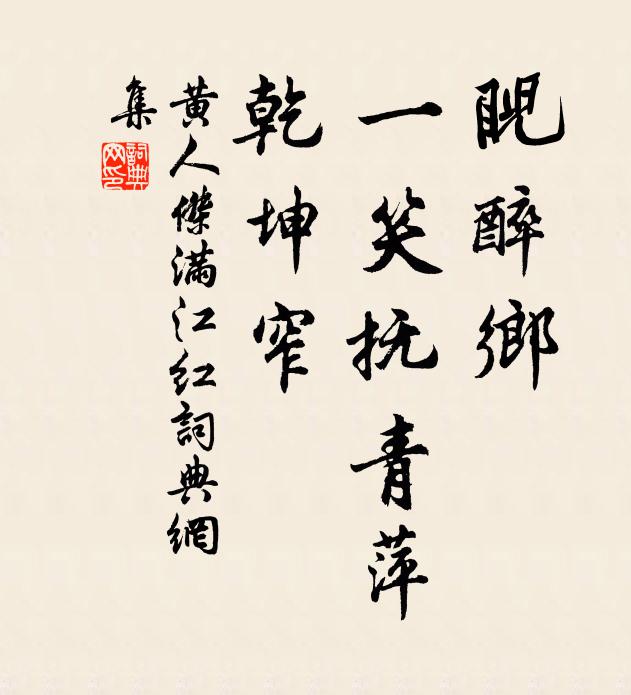 睨醉鄉
一笑抚青萍
乾坤窄
黃人傑滿江紅詞典網
集
詞典
网印